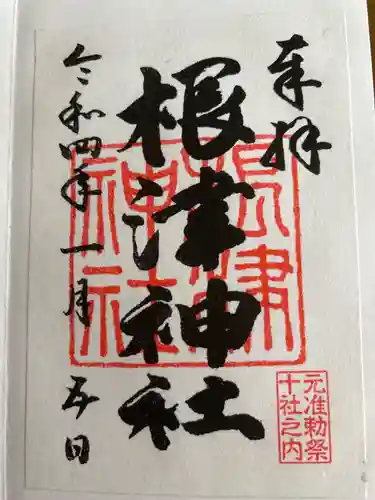 奉拝
根津神社
根津
神社
令和四年一月五日
元准勅祭
十社之内